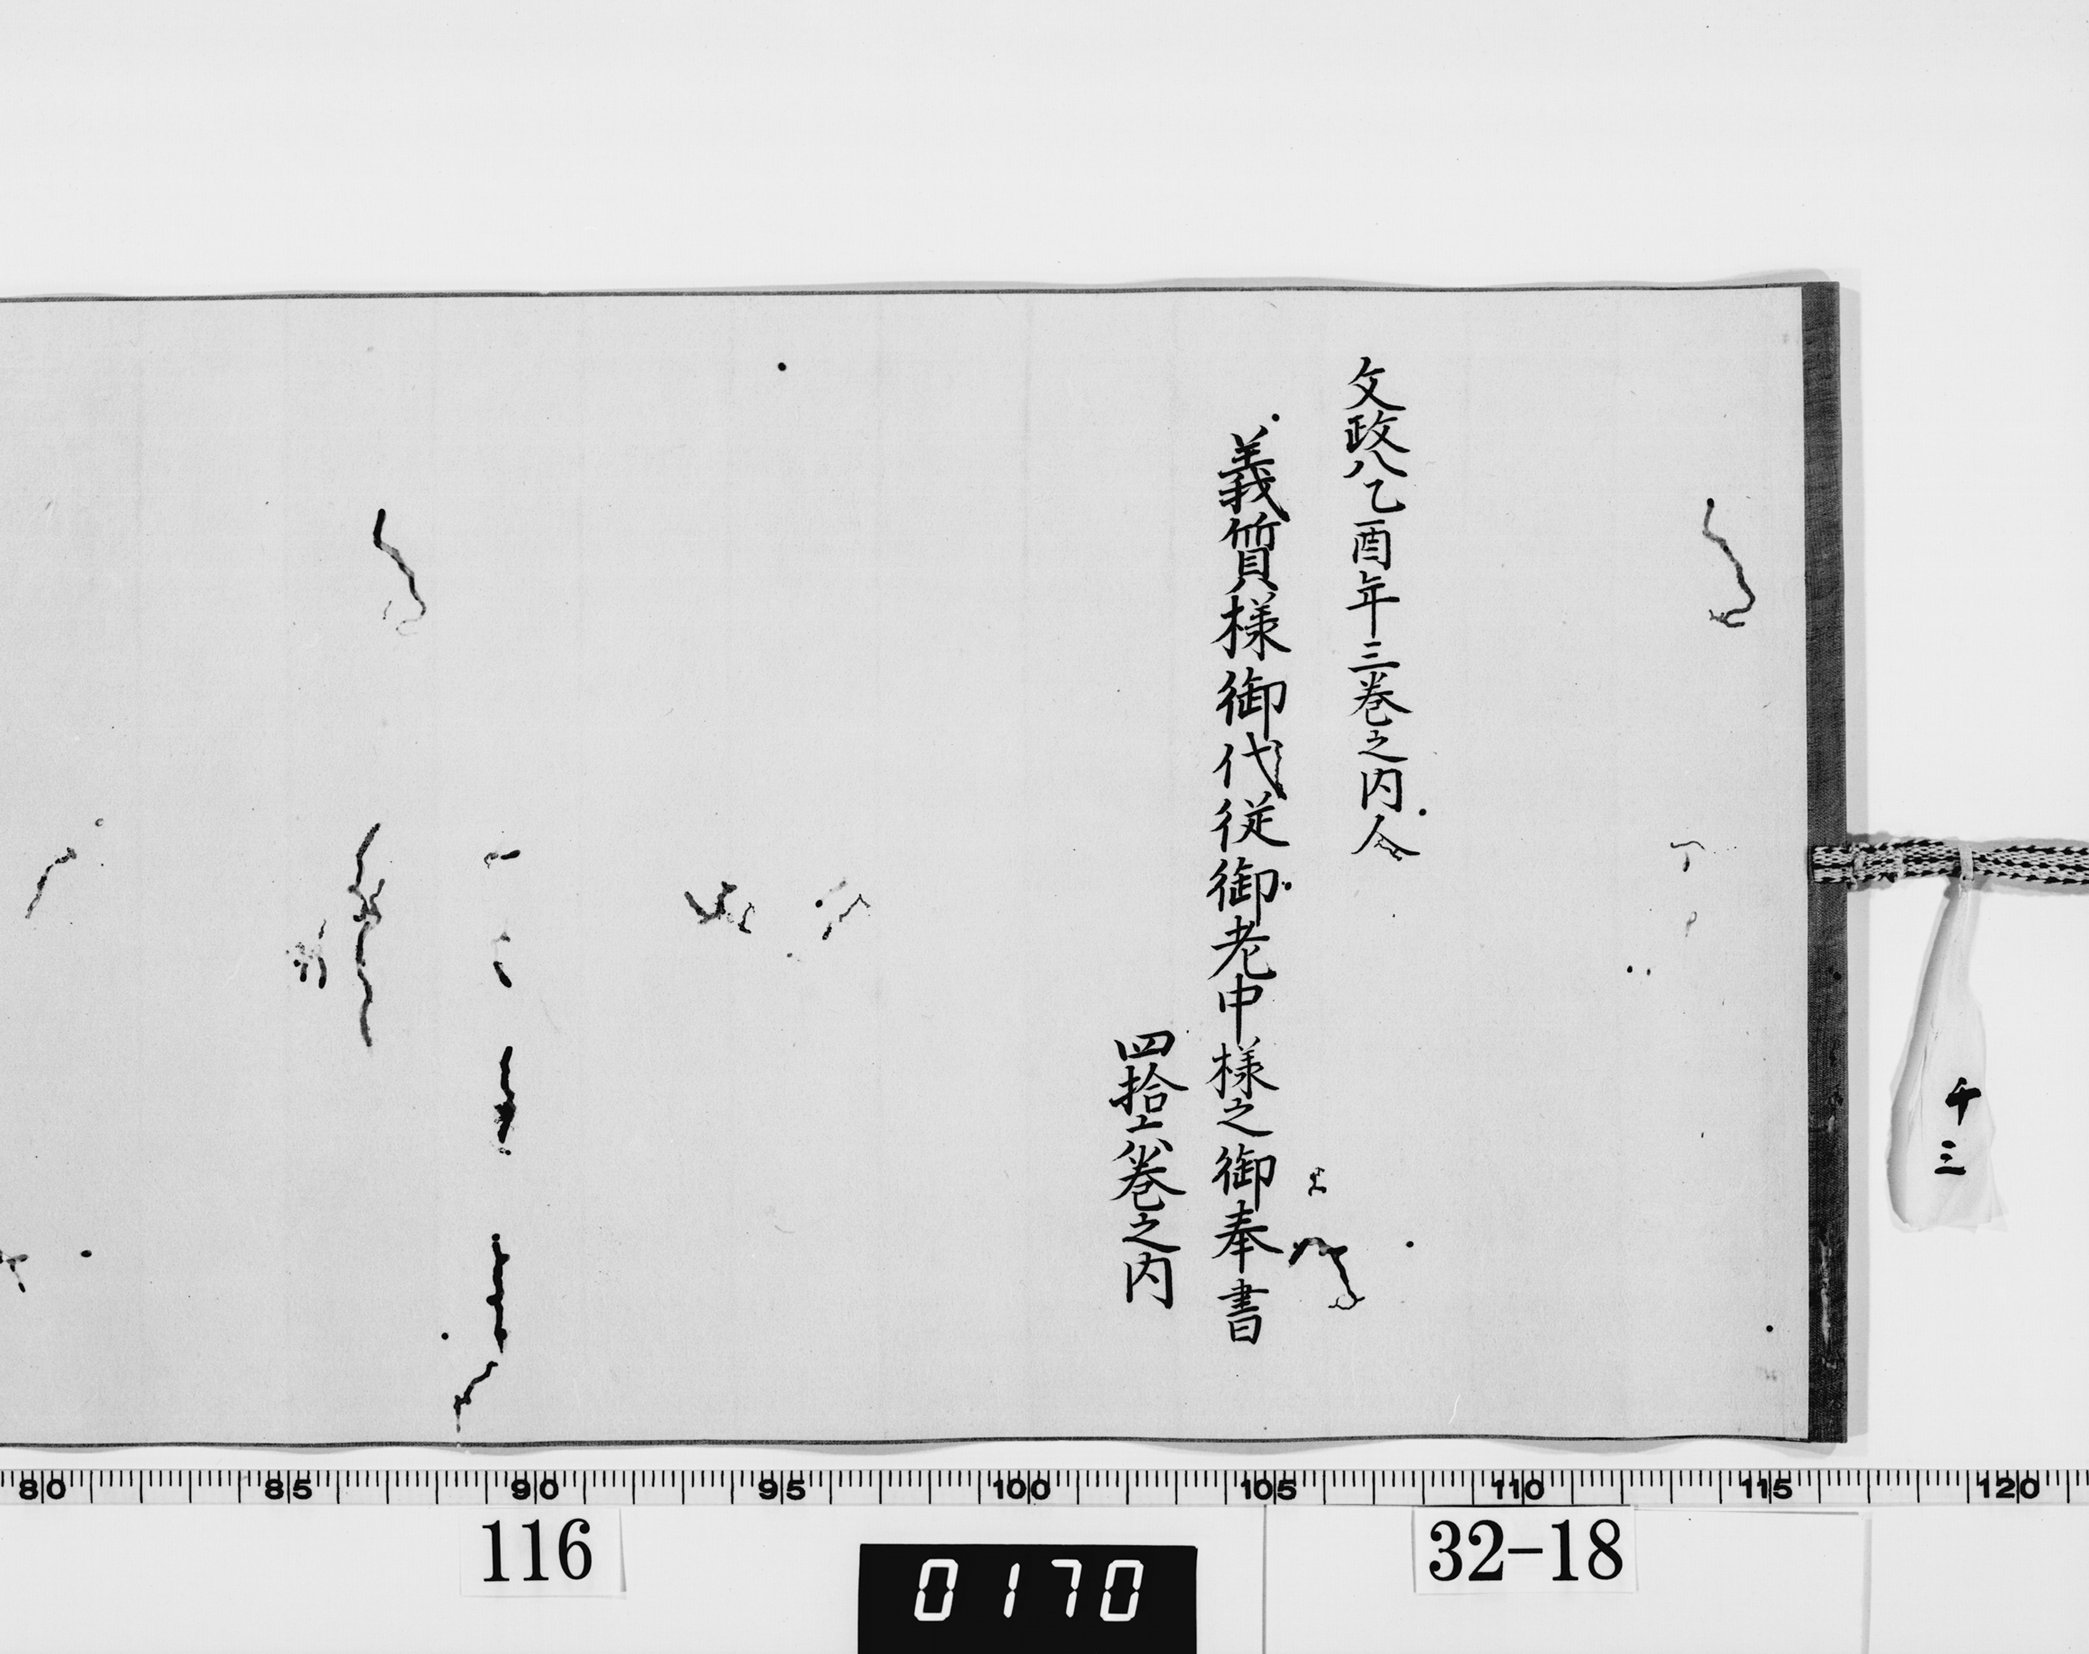 千三
文政八乙酉年三巻之内 人
義質様御代従御老中様之御奉書
四拾六巻之内
80 85 90 95 100 105 110 115 120
116
0170
32-18